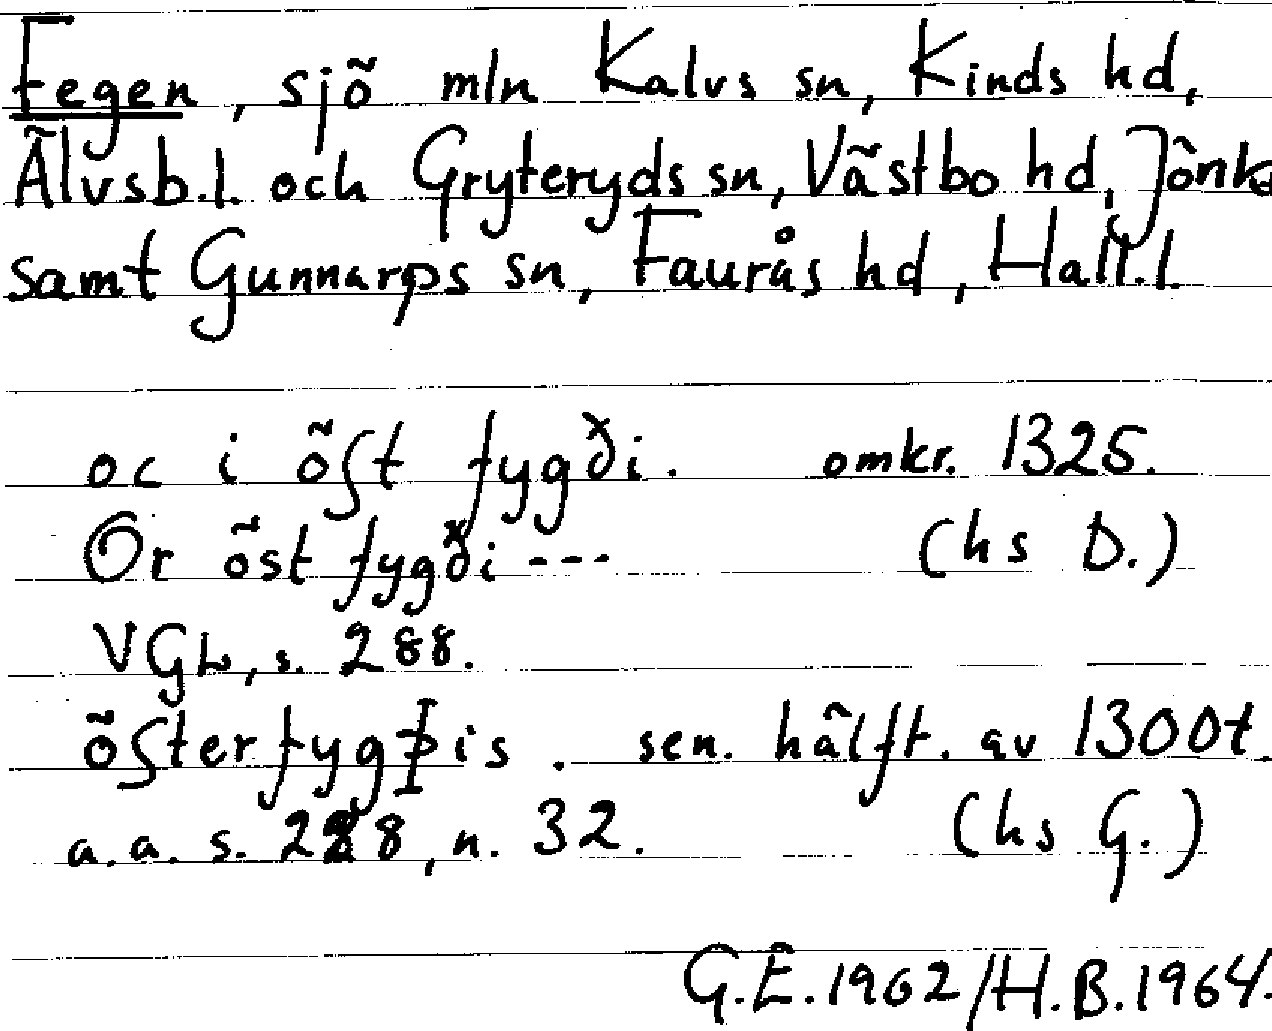 Fegen, sjö mln Kalvs sn, Kinds hd,
Älvsb.l. och Gryteryds sn, Västbo hd, Jönk
samt Gunnarps sn, Faurås hd, Hall.l.
oc i öſt fygði. omkr. 1325.
Or öst fygði --- (hs D.)
VGL, s. 288.
öſterfygþis. sen. hälft. av 1300t.
a.a. s. 288, n. 32. (hs G.)
G.E. 1962/H.B. 1964.